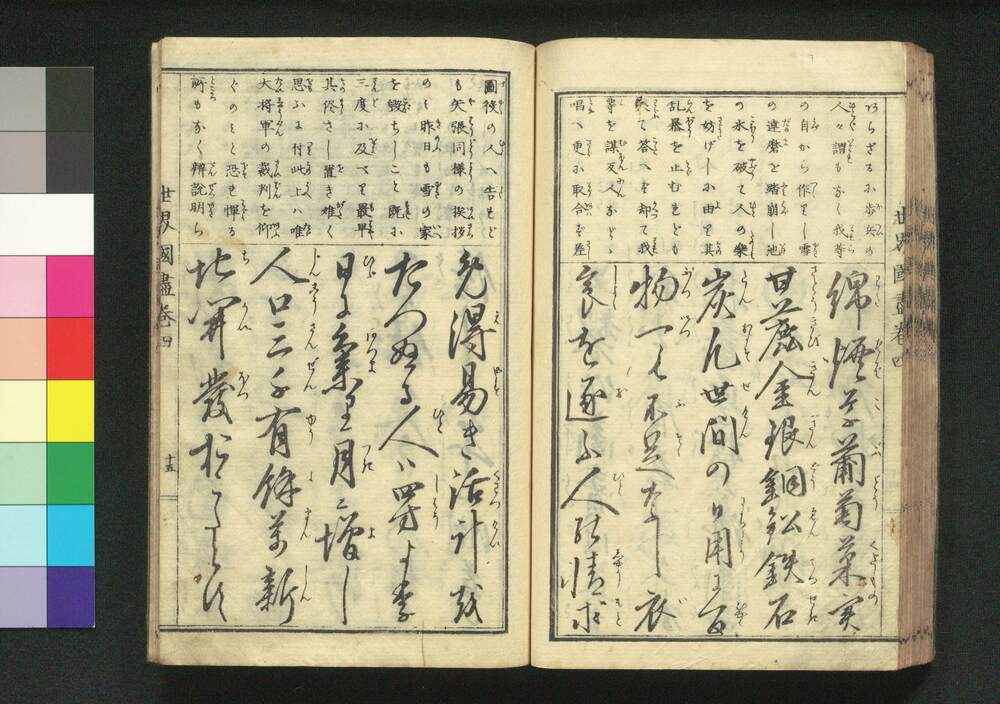 あらざるに歩兵の
人々謂もなく我等
の自から作りし雪
の達磨を踏崩し池
の氷を破て人の楽
を妨げしに由り其
乱暴を止むれども
答へを却て我
等を謀反人など
唱へ更に取合ず差
綿煙草葡萄菓実
甘蔗金銀銅鉛鉄石
炭凡世間の日用に百
物一も不足なし衣
食を逐ふ人の情求
世界國盡巻四
圖役の人へ告れど
も矢張同様の挨拶
のミ昨日も雪の家
を毀ちしこと既に
三度に及べり最早
其侭さし置き難く
思ふに付此上ハ唯
大将軍の裁判を仰
ぐのミと恐れ憚る
所もなく辨説明ら
免得易き活計を
たづぬる人ハ四方より
日に集り月に増し
人口三千有餘萬新
地開發
世界國盡巻四
十五